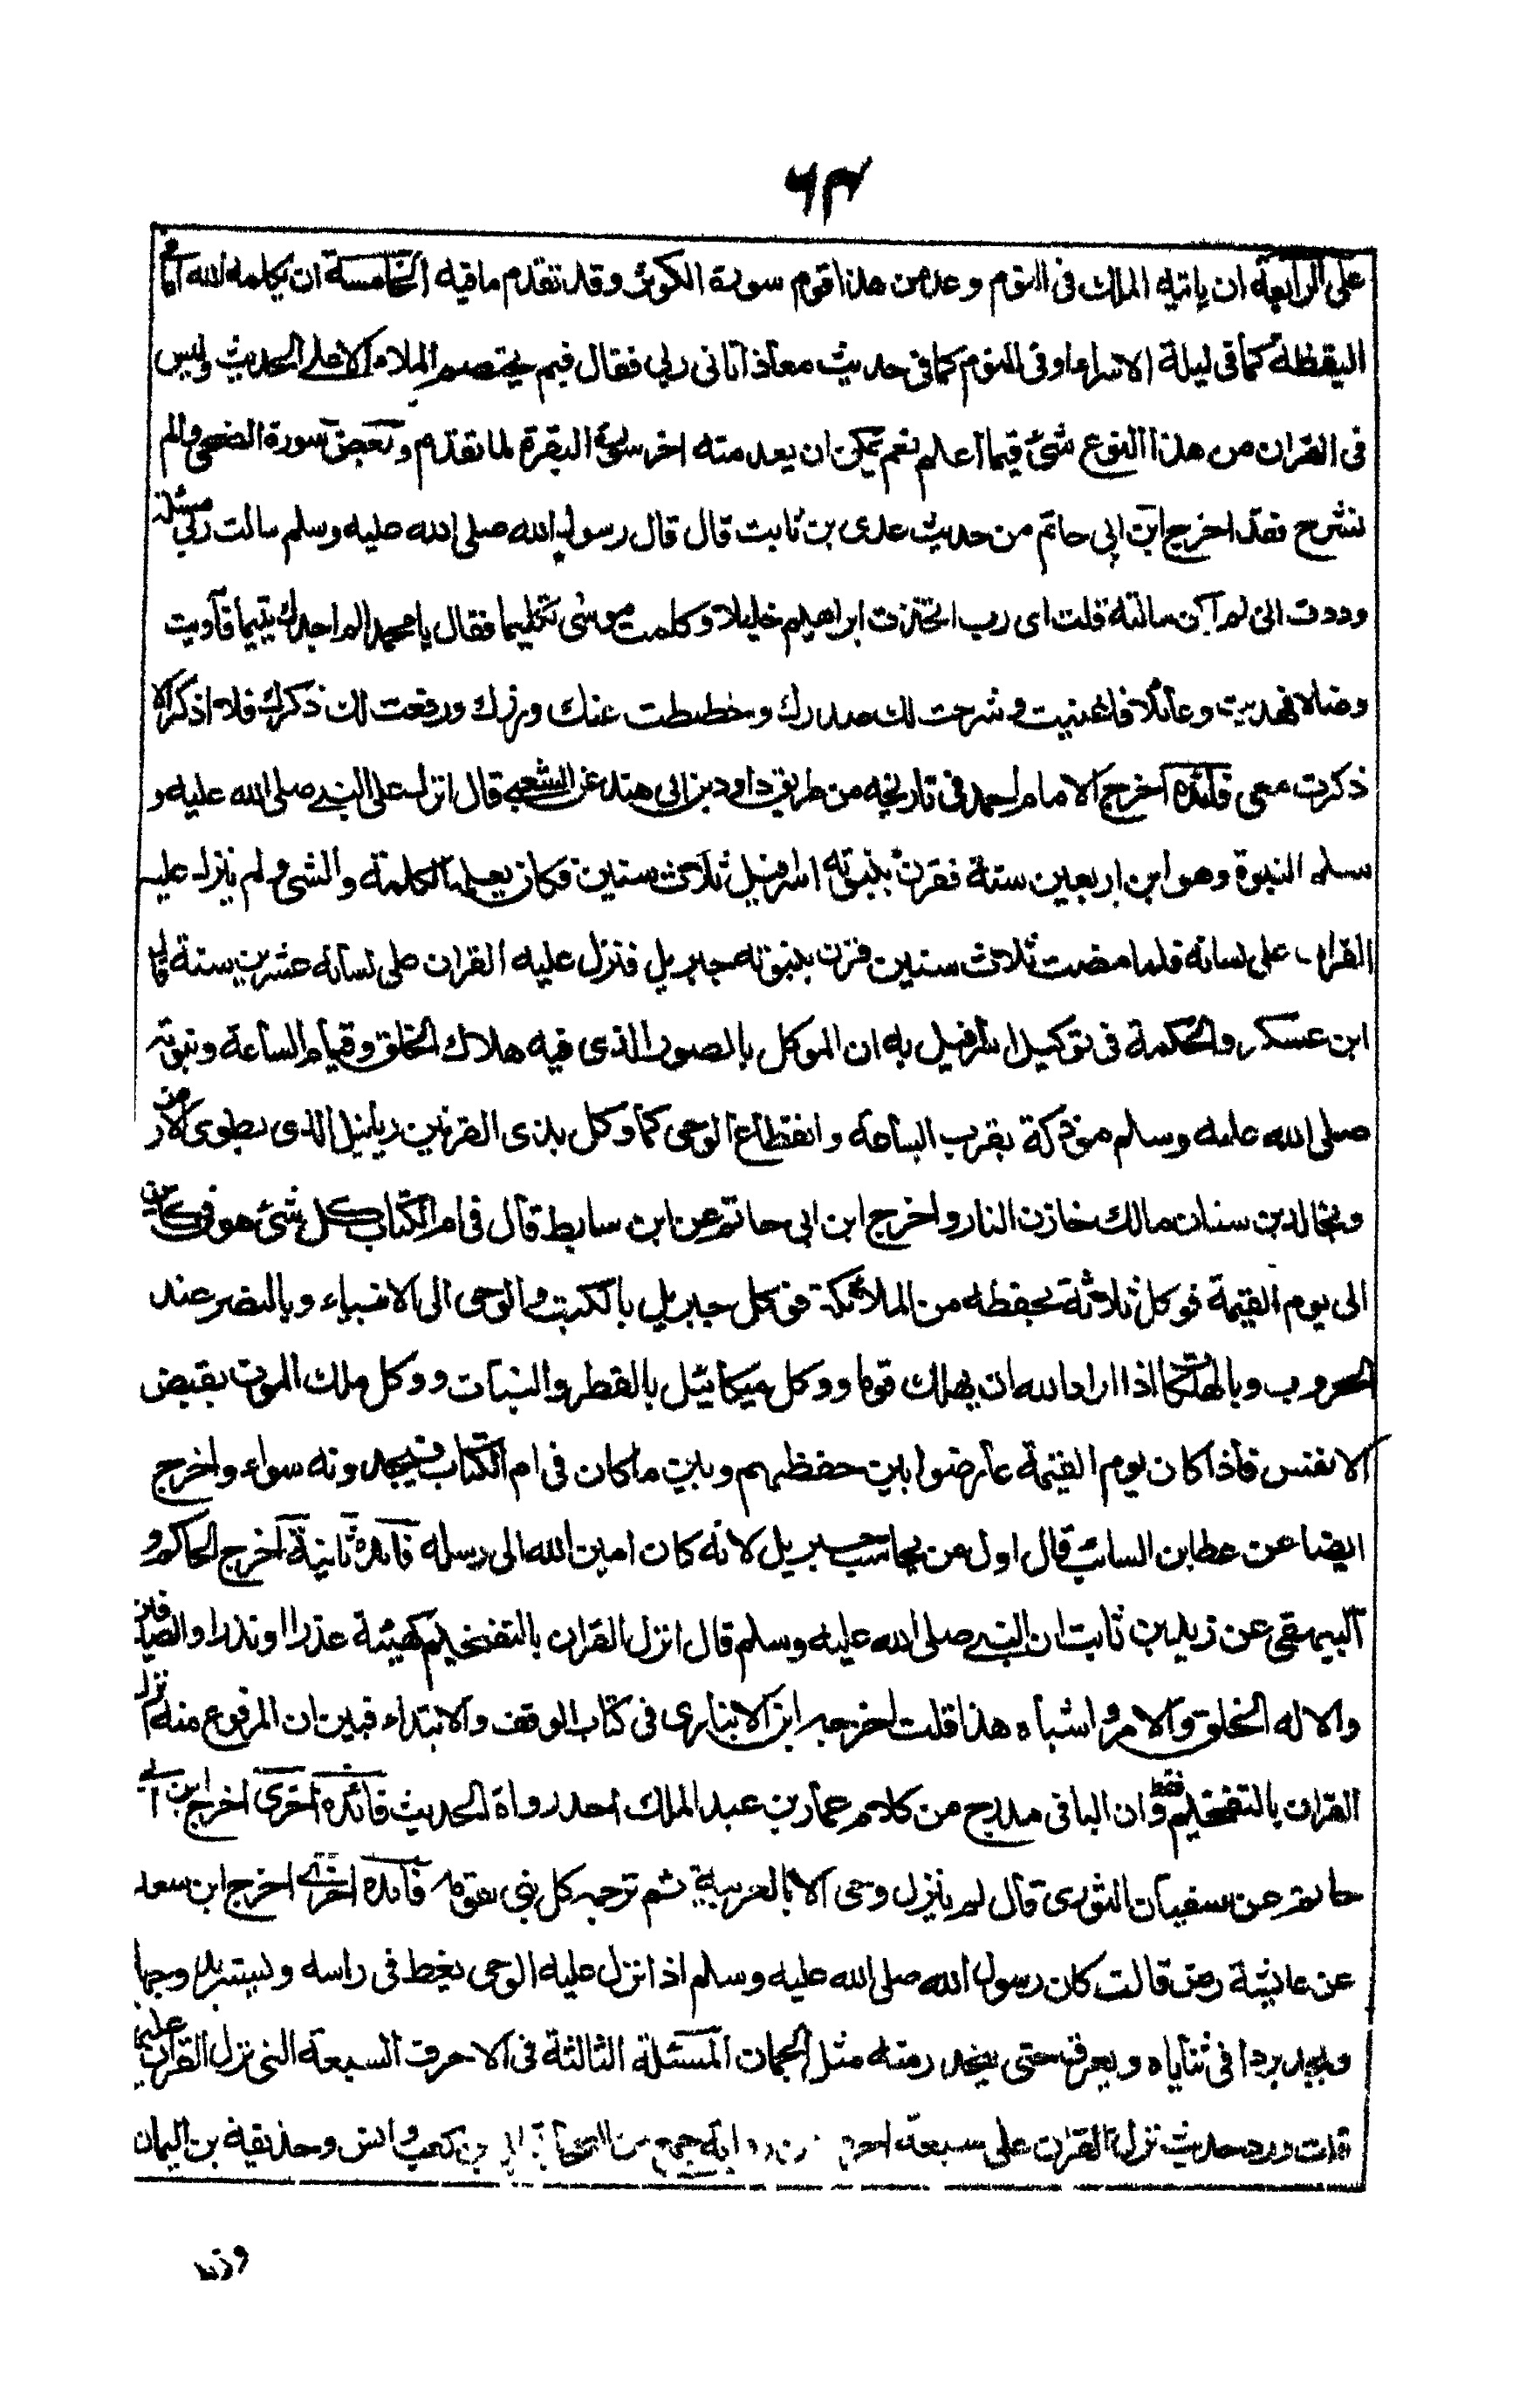 ٦٣
على الرابعة ان ياتيه الملك في النوم وعد من هذا قوم سورة الكوثر وقد تقدم ما فيه الخامسة ان يكلمه الله اما في
اليقظة كما في ليلة الاسراء او في النوم كما في حديث معاذ اتاني ربي فقال فيم يختصم الملاء الاعلے الحديث وليس
في القران من هذا النوع شئ فيما اعلم نعم يمكن ان يعد منه اخر سورة البقرة لما تقدم وبعض سورة الضحى والم
نشرح فقد اخرج ابن ابي حاتم من حديث عدى بن ثابت قال قال رسول الله صلى الله عليه وسلم سالت ربي مسئلة
وددت انى لم اكن سالته قلت اى رب اتخذت ابراهيم خليلا وكلمت موسى تكليما فقال يا محمد الم اجدك يتيما فآويت
وضالا فهديت وعائلا فاغنيت وشرحت لك صدرك وحططت عنك وزرك ورفعت لك ذكرك فلا اذكر الا
ذكرت معى فائدة اخرج الامام احمد في تاريخه من طريق داود بن ابى هند عن الشعبے قال انزل على النبے صلى الله عليه و
سلم النبوة وهو ابن اربعين سنة فقرن بنبوته اسرافيل ثلاث سنين فكان يعلمه الكلمة والشئ ولم ينزل عليه
القران على لسانه فلما مضت ثلاث سنين قرن بنبوته جبريل فنزل عليه القران على لسانه عشرين سنة قال
ابن عسكر والحكمة في توكيل اسرافيل به ان الموكل بالصور الذى فيه هلاك الخلق وقيام الساعة ونبوته
صلى الله عليه وسلم موذكة بقرب الساعة وانقطاع الوحى كما وكل بذى القرنين ريافيل الذى يطوى الارض
وبخالد بن سنان مالك خازن النار واخرج ابن ابى حاتم عن ابن سابط قال في ام الكتاب كل شئ هو كائن
الى يوم القيمة فوكل ثلاثة بحفظه من الملائكة فوكل جبريل بالكتب والوحى الى الانبياء وبالنصر عند
الحروب وبالهلكا اذا اراد الله ان يهلك قوما ووكل ميكائيل بالقطر والنبات ووكل ملك الموت بقبض
الانفس فاذا كان يوم القيمة عارضوا بين حفظهم وبين ما كان في ام الكتاب فيجدونه سواء واخرج
ايضا عن عطا بن السائب قال اول من يحاسب جبريل لانه كان امين الله الى رسله فائدة ثانية اخرج الحاكم و
البيهقى عن زيد بن ثابت ان النبے صلى الله عليه وسلم قال انزل القران بالتفخيم كهيئة عذرا او نذرا والصدفين
والا له الخلق والامر واشباه هذا قلت اخرجه ابن الانبارى في كتاب الوقف والابتداء فبين ان المرفوع منه انزل
القران بالتفخيم فقط وان الباقى مدرج من كلام عمار بن عبد الملك احد رواة الحديث فائدة اخرى اخرج ابن ابے
حاتم عن سفيان الثورى قال لم ينزل وحى الا بالعربية ثم ترجم كل نبى لقومه فائدة اخرى اخرج ابن سعد
عن عايشة رض قالت كان رسول الله صلى الله عليه وسلم اذا نزل عليه الوحى يغط في راسه ويتربد وجهه
ويجد بردا في ثناياه ويعرق حتى يتحدر منه مثل الجمان المسئلة الثالثة في الاحرف السبعة التى نزل القران عليها
قلت ورد حديث نزل القران على سبعة احرف من رواية جمع من الصحابة ابى بن كعب وانس وحذيفة بن اليمان
وزيد